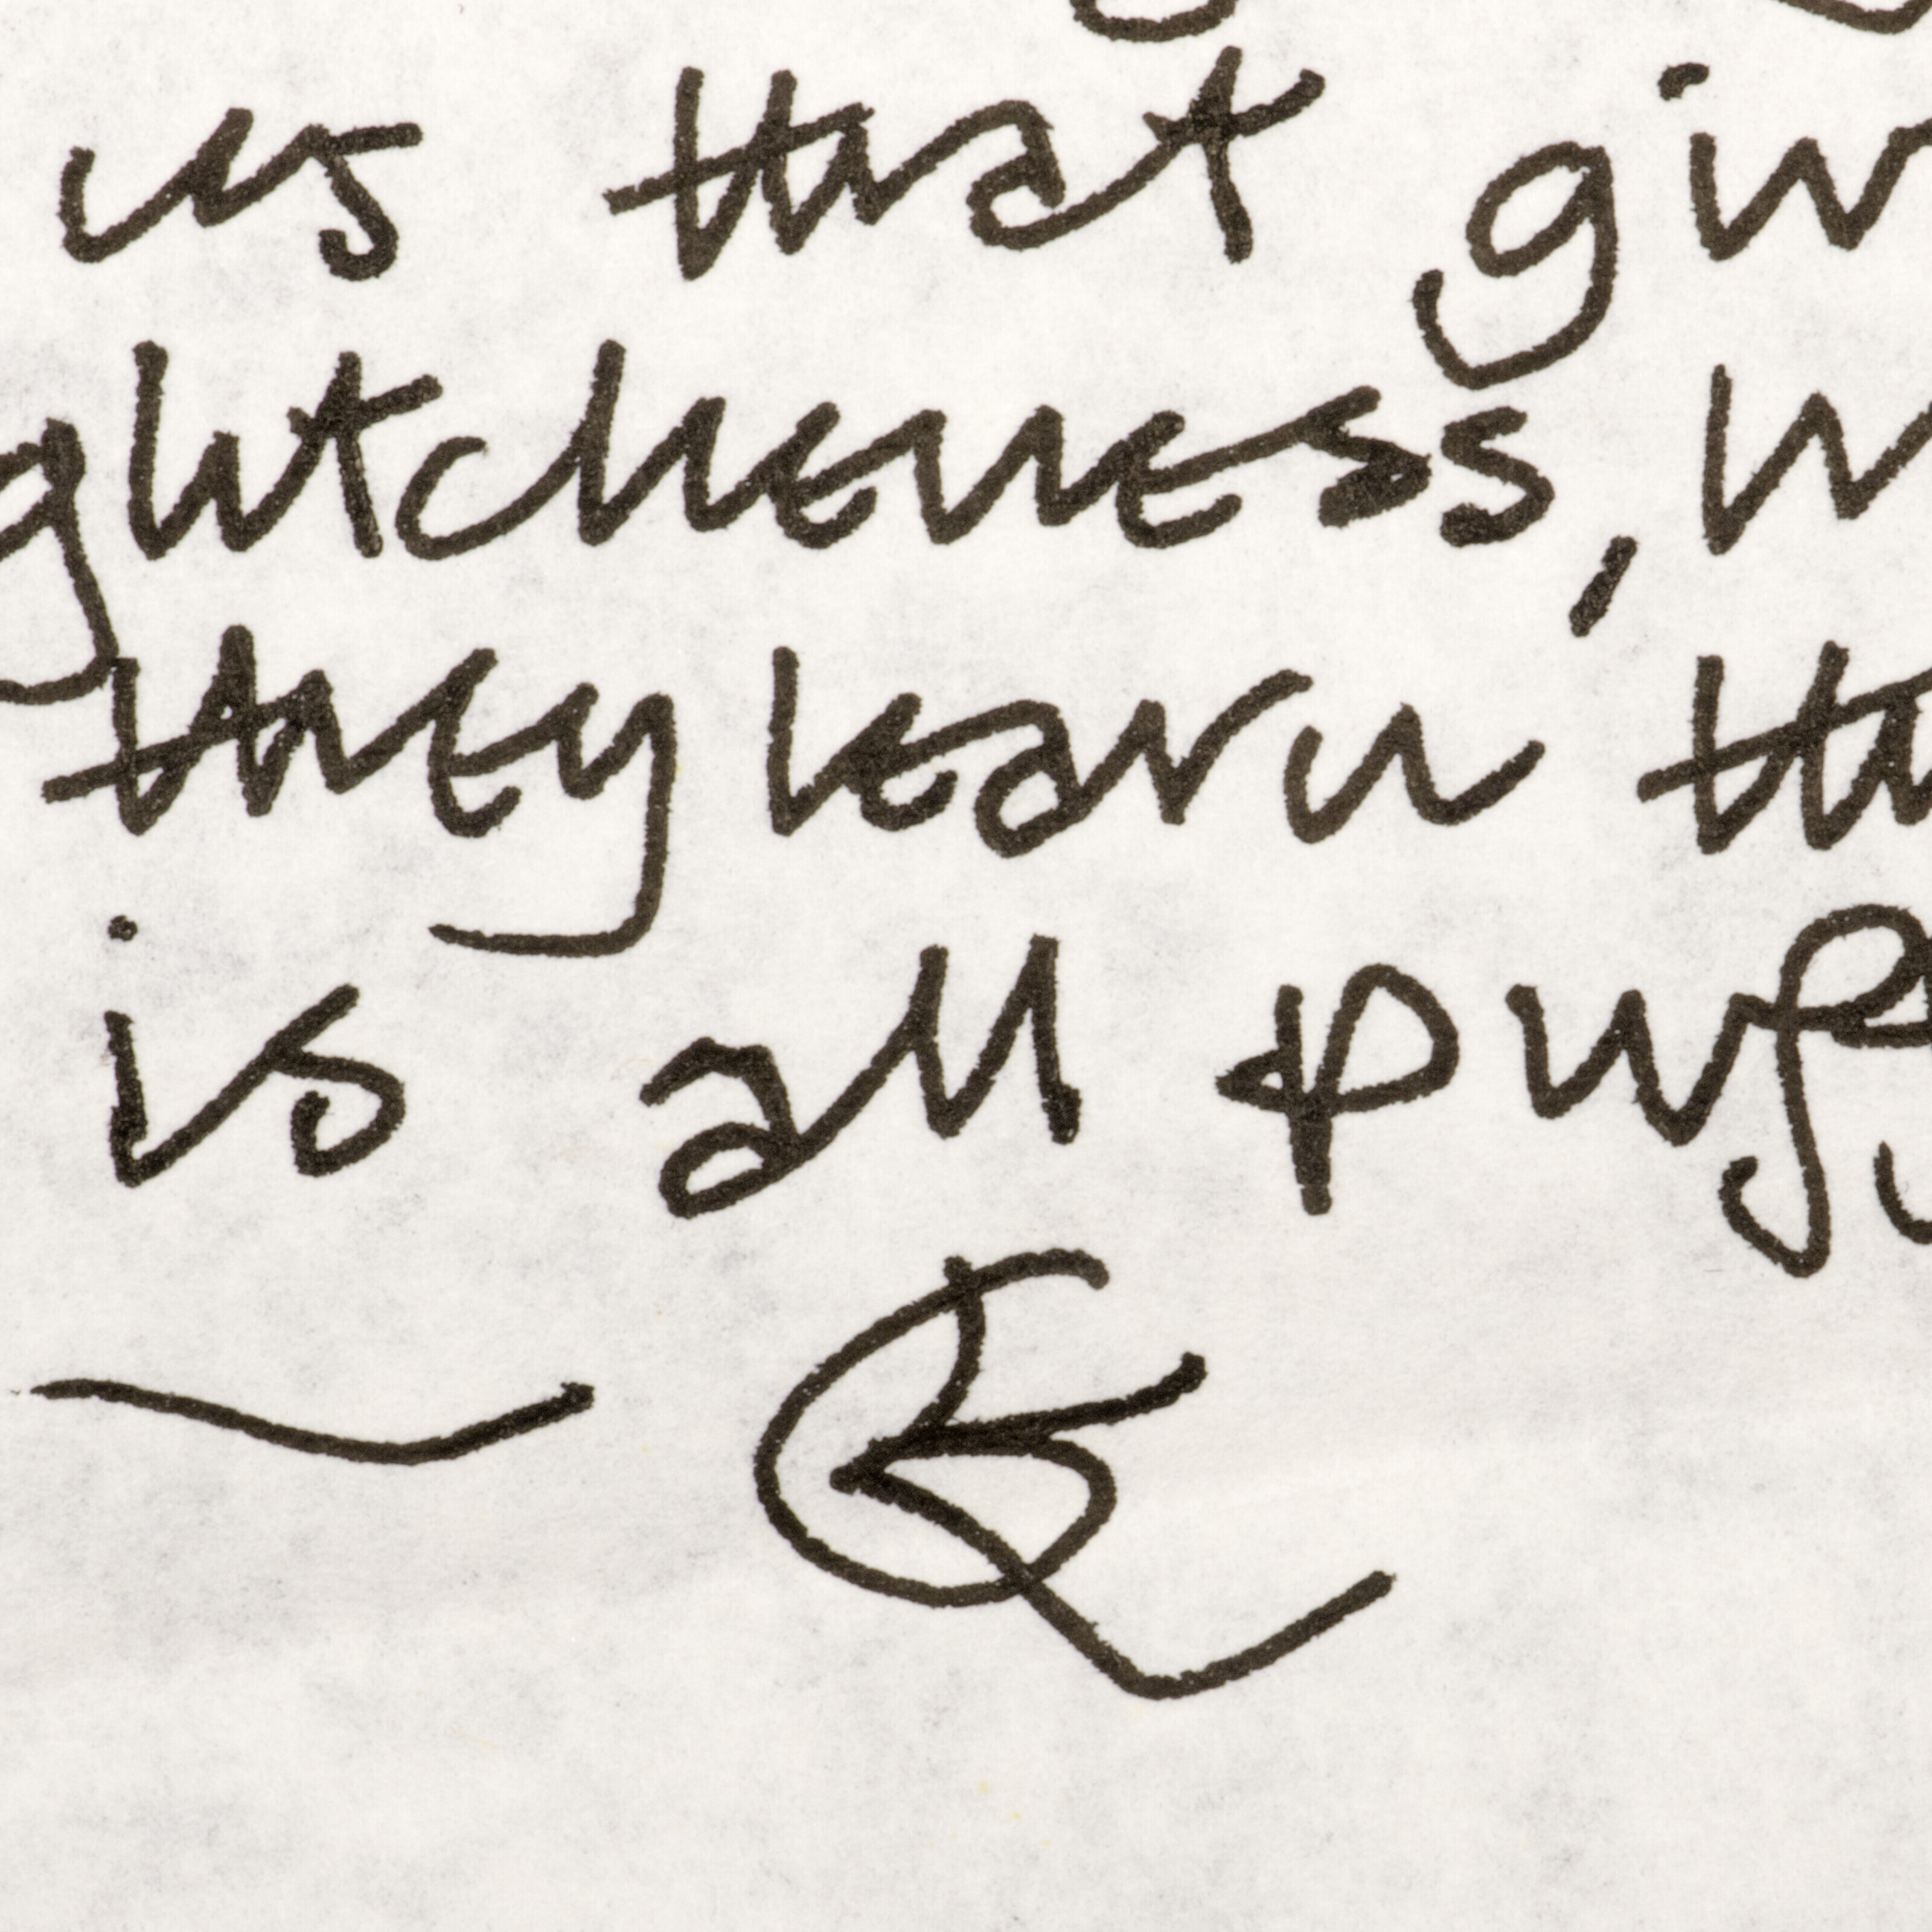 us that giv
ghtcheness, w
they learn th
is all purpo